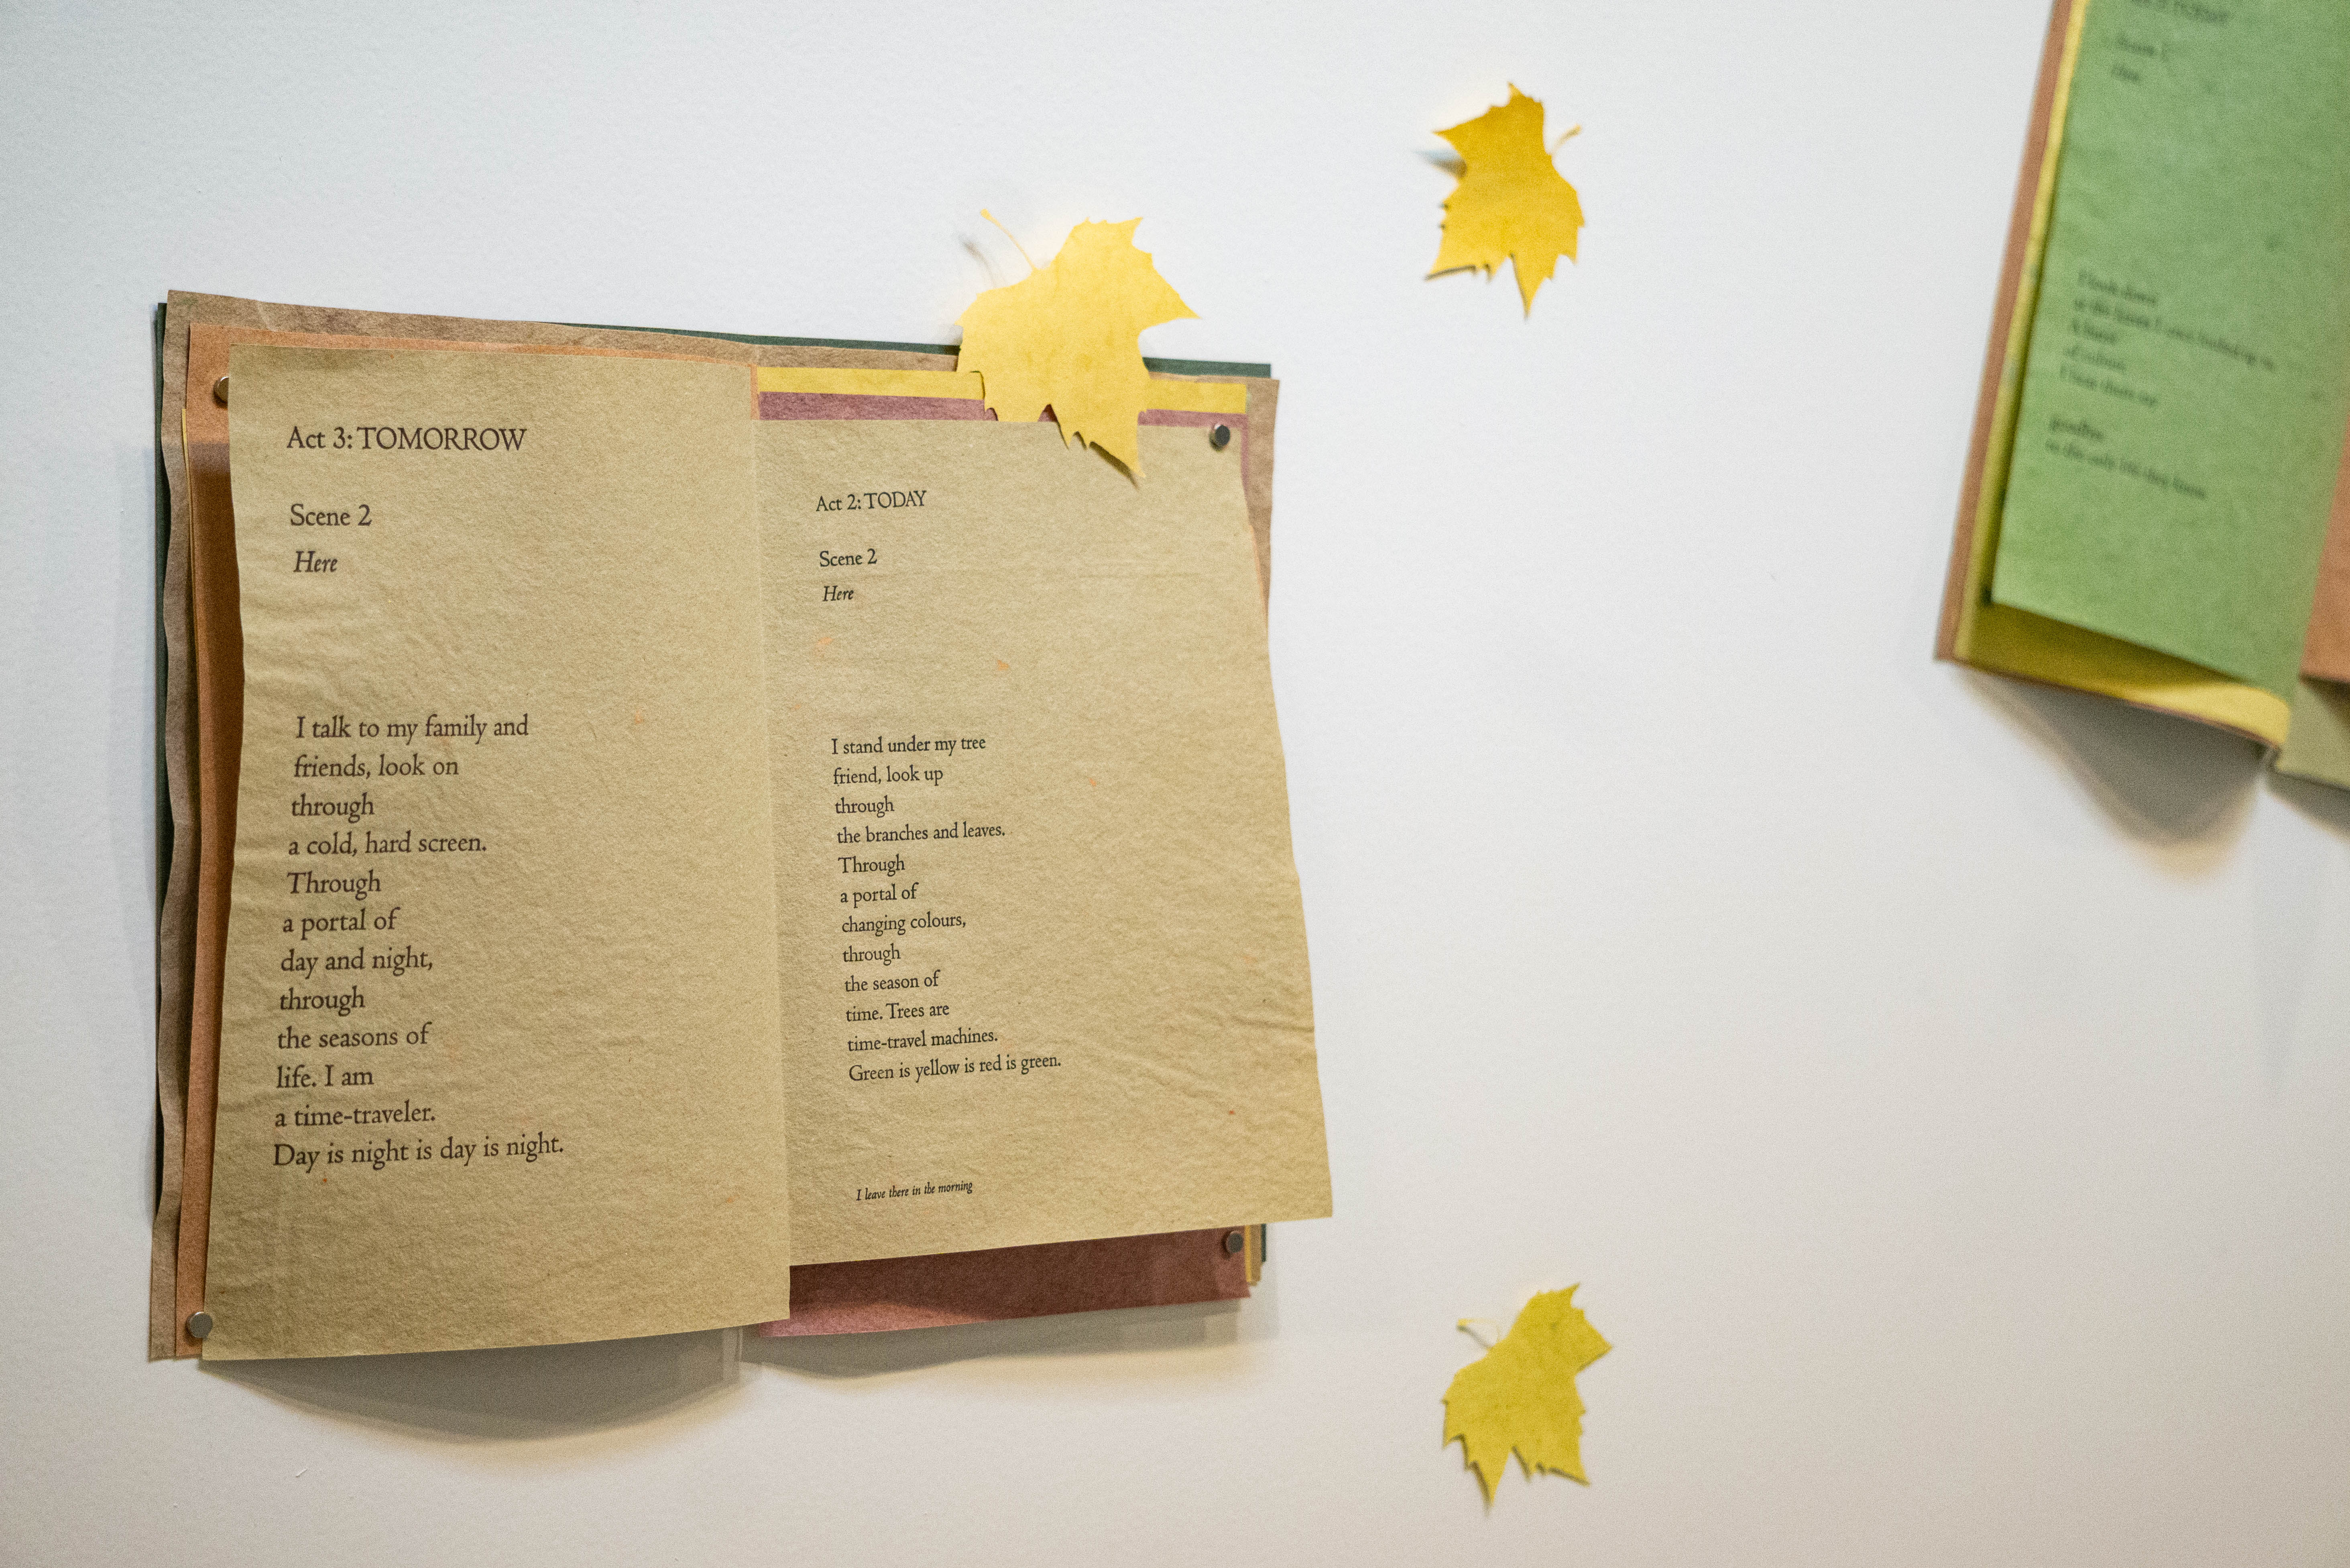 Act 3: TOMORROW
Scene 2
Here
I talk to my family and
friends, look on
through
a cold, hard screen.
Through
a portal of
day and night,
through
the seasons of
life. I am
a time-traveler.
Day is night is day is night.
Act 2: TODAY
Scene 2
Here
I stand under my tree
friend, look up
through
the branches and leaves.
Through
a portal of
changing colours,
through
the season of
time. Trees are
time-travel machines.
Green is yellow is red is green.
I leave there in the morning
I look down
at the leaves I
goodbye